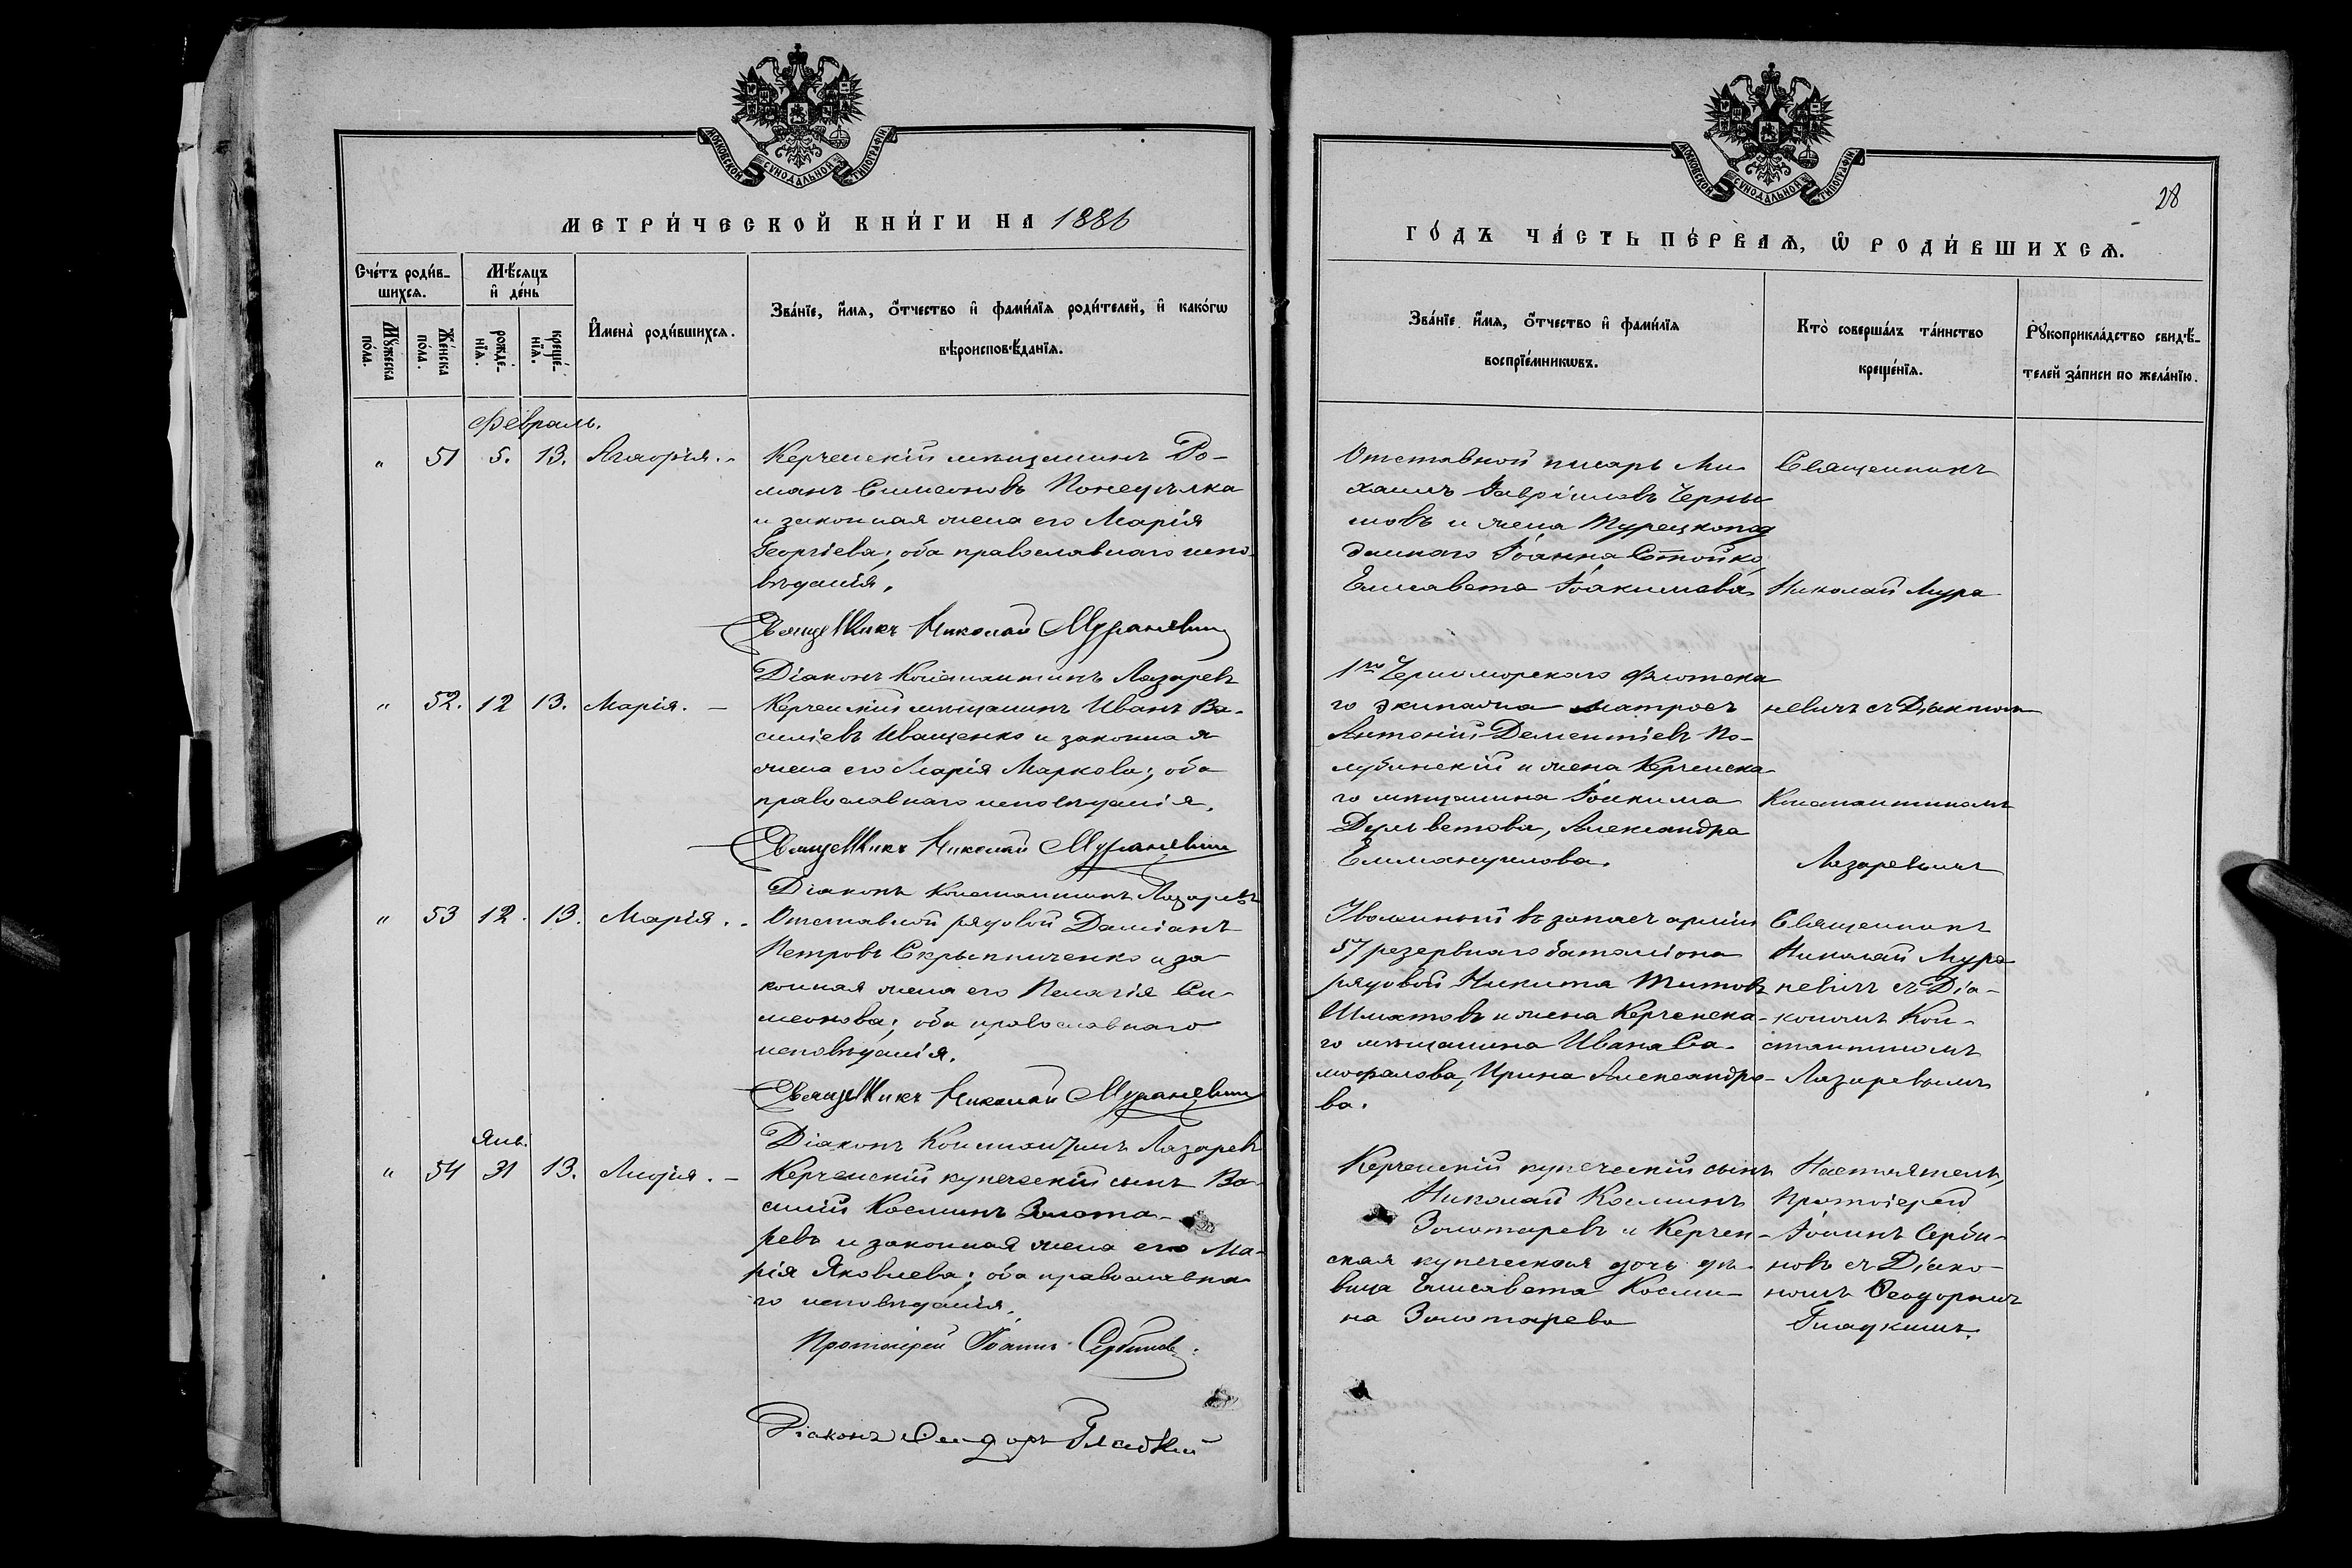 МОСКОВСКОЙ СѴНОДАЛЬНОЙ ТИПОГРАФІИ
МЕТРИ́ЧЕСКОЙ КНИ́ГИ НА 1886
Сче́тъ роди́в-
шихсѧ.
Мꙋ́жеска
по́ла.
Же́нска
по́ла.
Мѣ́сяцъ
и҆ де́нь
рожде́-
нїѧ.
креще́-
нїѧ.
И҆мена̀ роди́вшихсѧ.
Зва́нїе, и҆́мѧ, ѻ҆́тчество и҆ фами́лїѧ роди́телей, и҆ како́гѡ
вѣроисповѣ́данїѧ.
Февраль.
" 51 5. 13.
Керченскій мѣщанинъ Ро-
манъ Симеоновъ Понедѣлка
и законная жена его Марія
Георгіева; оба православнаго испо-
вѣданія.
Священникъ Николай Мураневич
Діаконъ Константинъ Лазаревъ
" 52. 12 13. Марія. –
Керченскій мѣщанинъ Иванъ Ва-
силіевъ Иващенко и законная
жена его Марія Маркова; оба
православнаго исповѣданія.
Священникъ Николай Мураневич
Діаконъ Константинъ Лазаревъ
" 53 12. 13. Марія. -
Отставной рядовой Даміанъ
Петровъ Скрыпниченко и за-
конная жена его Пелагія Си-
меонова; оба православнаго
исповѣданія.
Священникъ Николай Мураневич
Діаконъ Константинъ Лазаревъ
Янв.
" 54 31 13. Лидія. –
Керченскій купеческій сынъ Ва-
силій Косминъ Золота-
ревъ и законная жена его Ма-
рія Яковлева; оба православна-
го исповѣданія.
Протоіерей Іоаннъ Сербиновъ
Діаконъ Ѳеодоръ Гладкій
МОСКОВСКОЙ СѴНОДАЛЬНОЙ ТИПОГРАФІИ
28
ГО́ДЪ ЧА́СТЬ ПЕ́РВАѦ, Ѡ҆ РОДИ́ВШИХСѦ.
Зва́нїе и҆́мѧ, ѻ҆́тчество и҆ фами́лїѧ
воспрїе́мникѡвъ.
Кто̀ соверша́лъ та́инство
креще́нїѧ.
Рꙋкоприкла́дство свидѣ́-
телей за́писи по жела́нїю.
Отставной писарь Ми-
хаилъ Гавріиловъ Черны-
шовъ и жена Турецкопод
даннаго Іоанна Стойко
Елисавета Іоакимова
Священникъ
Николай Мура
1го Черноморскаго Флотска-
го экипажа матросъ
Антоній Дементіевъ По-
лубинскій и жена Керченска-
го мѣщанина Іоакима
Александра
Еммануилова.
невичъ съ Діакономъ
Константиномъ
Лазаревымъ
Уволенный въ запасъ арміи
57 резервнаго баталіона
рядовой Никита Титовъ
Шматовъ и жена Керченска-
го мѣщанина Ивана Са-
мофалова, Ирина Александро-
ва.
Священникъ
Николай Мура
невичъ съ Діа-
кономъ Кон-
стантиномъ
Лазаревымъ
Керченскій купеческій сынъ
Николай Косминъ
Золотаревъ и Керчен-
ская купеческая дочь дѣ-
вица Елисавета Косми-
на Золотарева
Настоятель,
Протоіерей
Іоаннъ Серби-
новъ съ Діако-
номъ Ѳеодоромъ
Гладкимъ.